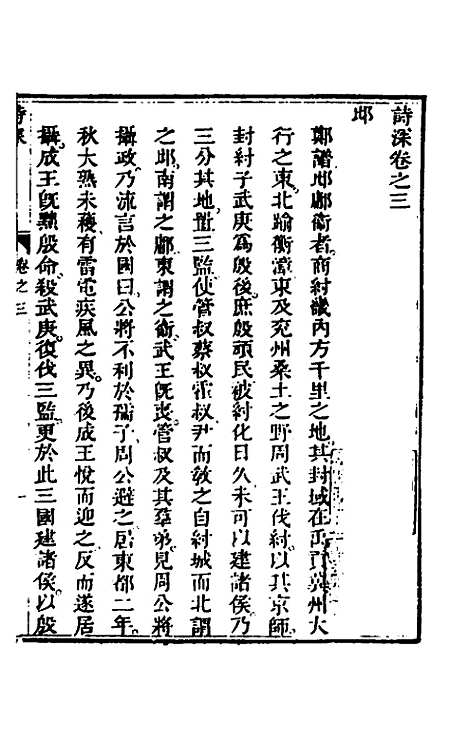 詩深卷之三
邶
鄭譜邶鄘衞者商紂畿內方千里之地其封域在禹貢冀州大
行之東北踰衡漳東及兗州桑土之野周武王伐紂以其京師
封紂子武庚爲殷後庶殷頑民被紂化日久未可以建諸侯乃
三分其地置三監使管叔蔡叔霍叔尹而敎之自紂城而北謂
之邶南謂之鄘東謂之衞武王旣喪管叔及其羣弟見周公將
攝政乃流言於國曰公將不利於孺子周公避之居東都二年
秋大熟未穫有雷電疾風之異乃後成王悅而迎之反而遂居
攝成王旣黜殷命殺武庚復伐三監更於此三國建諸侯以殷
詩深
卷之三
一